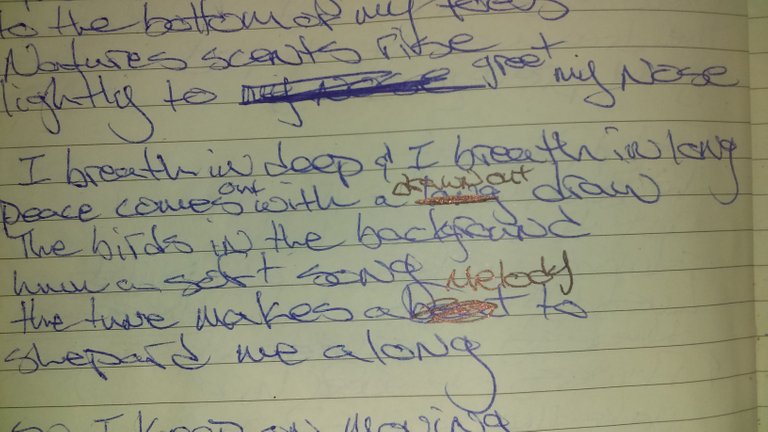 to the bottom of my toes
Natures scents rise
lightly to my nose greet my Nose
I breath in deep & I breath in long
Peace comes out with a drawn out long draw
The birds in the background
hum a soft song Melody
the tune makes a beat to
shepard me along
so I keep on moving